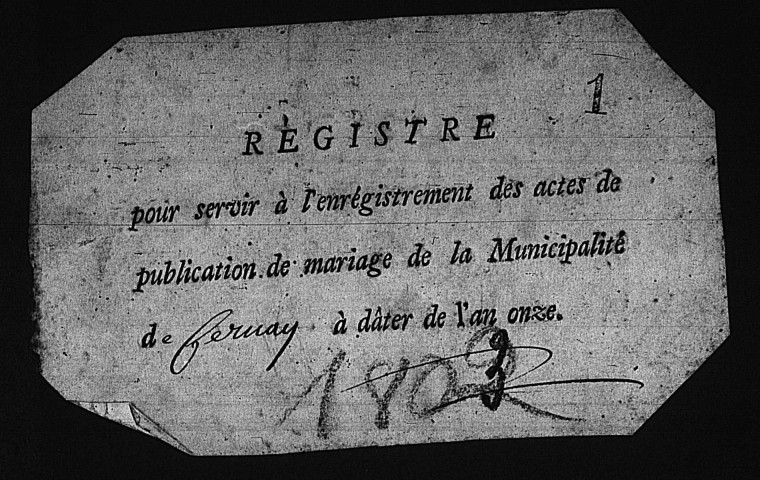 1
RÈGISTRE
pour servir à l'enrégistrement des actes de
publication de mariage de la Municipalité
de fernay à dâter de l'an onze.
1802
3